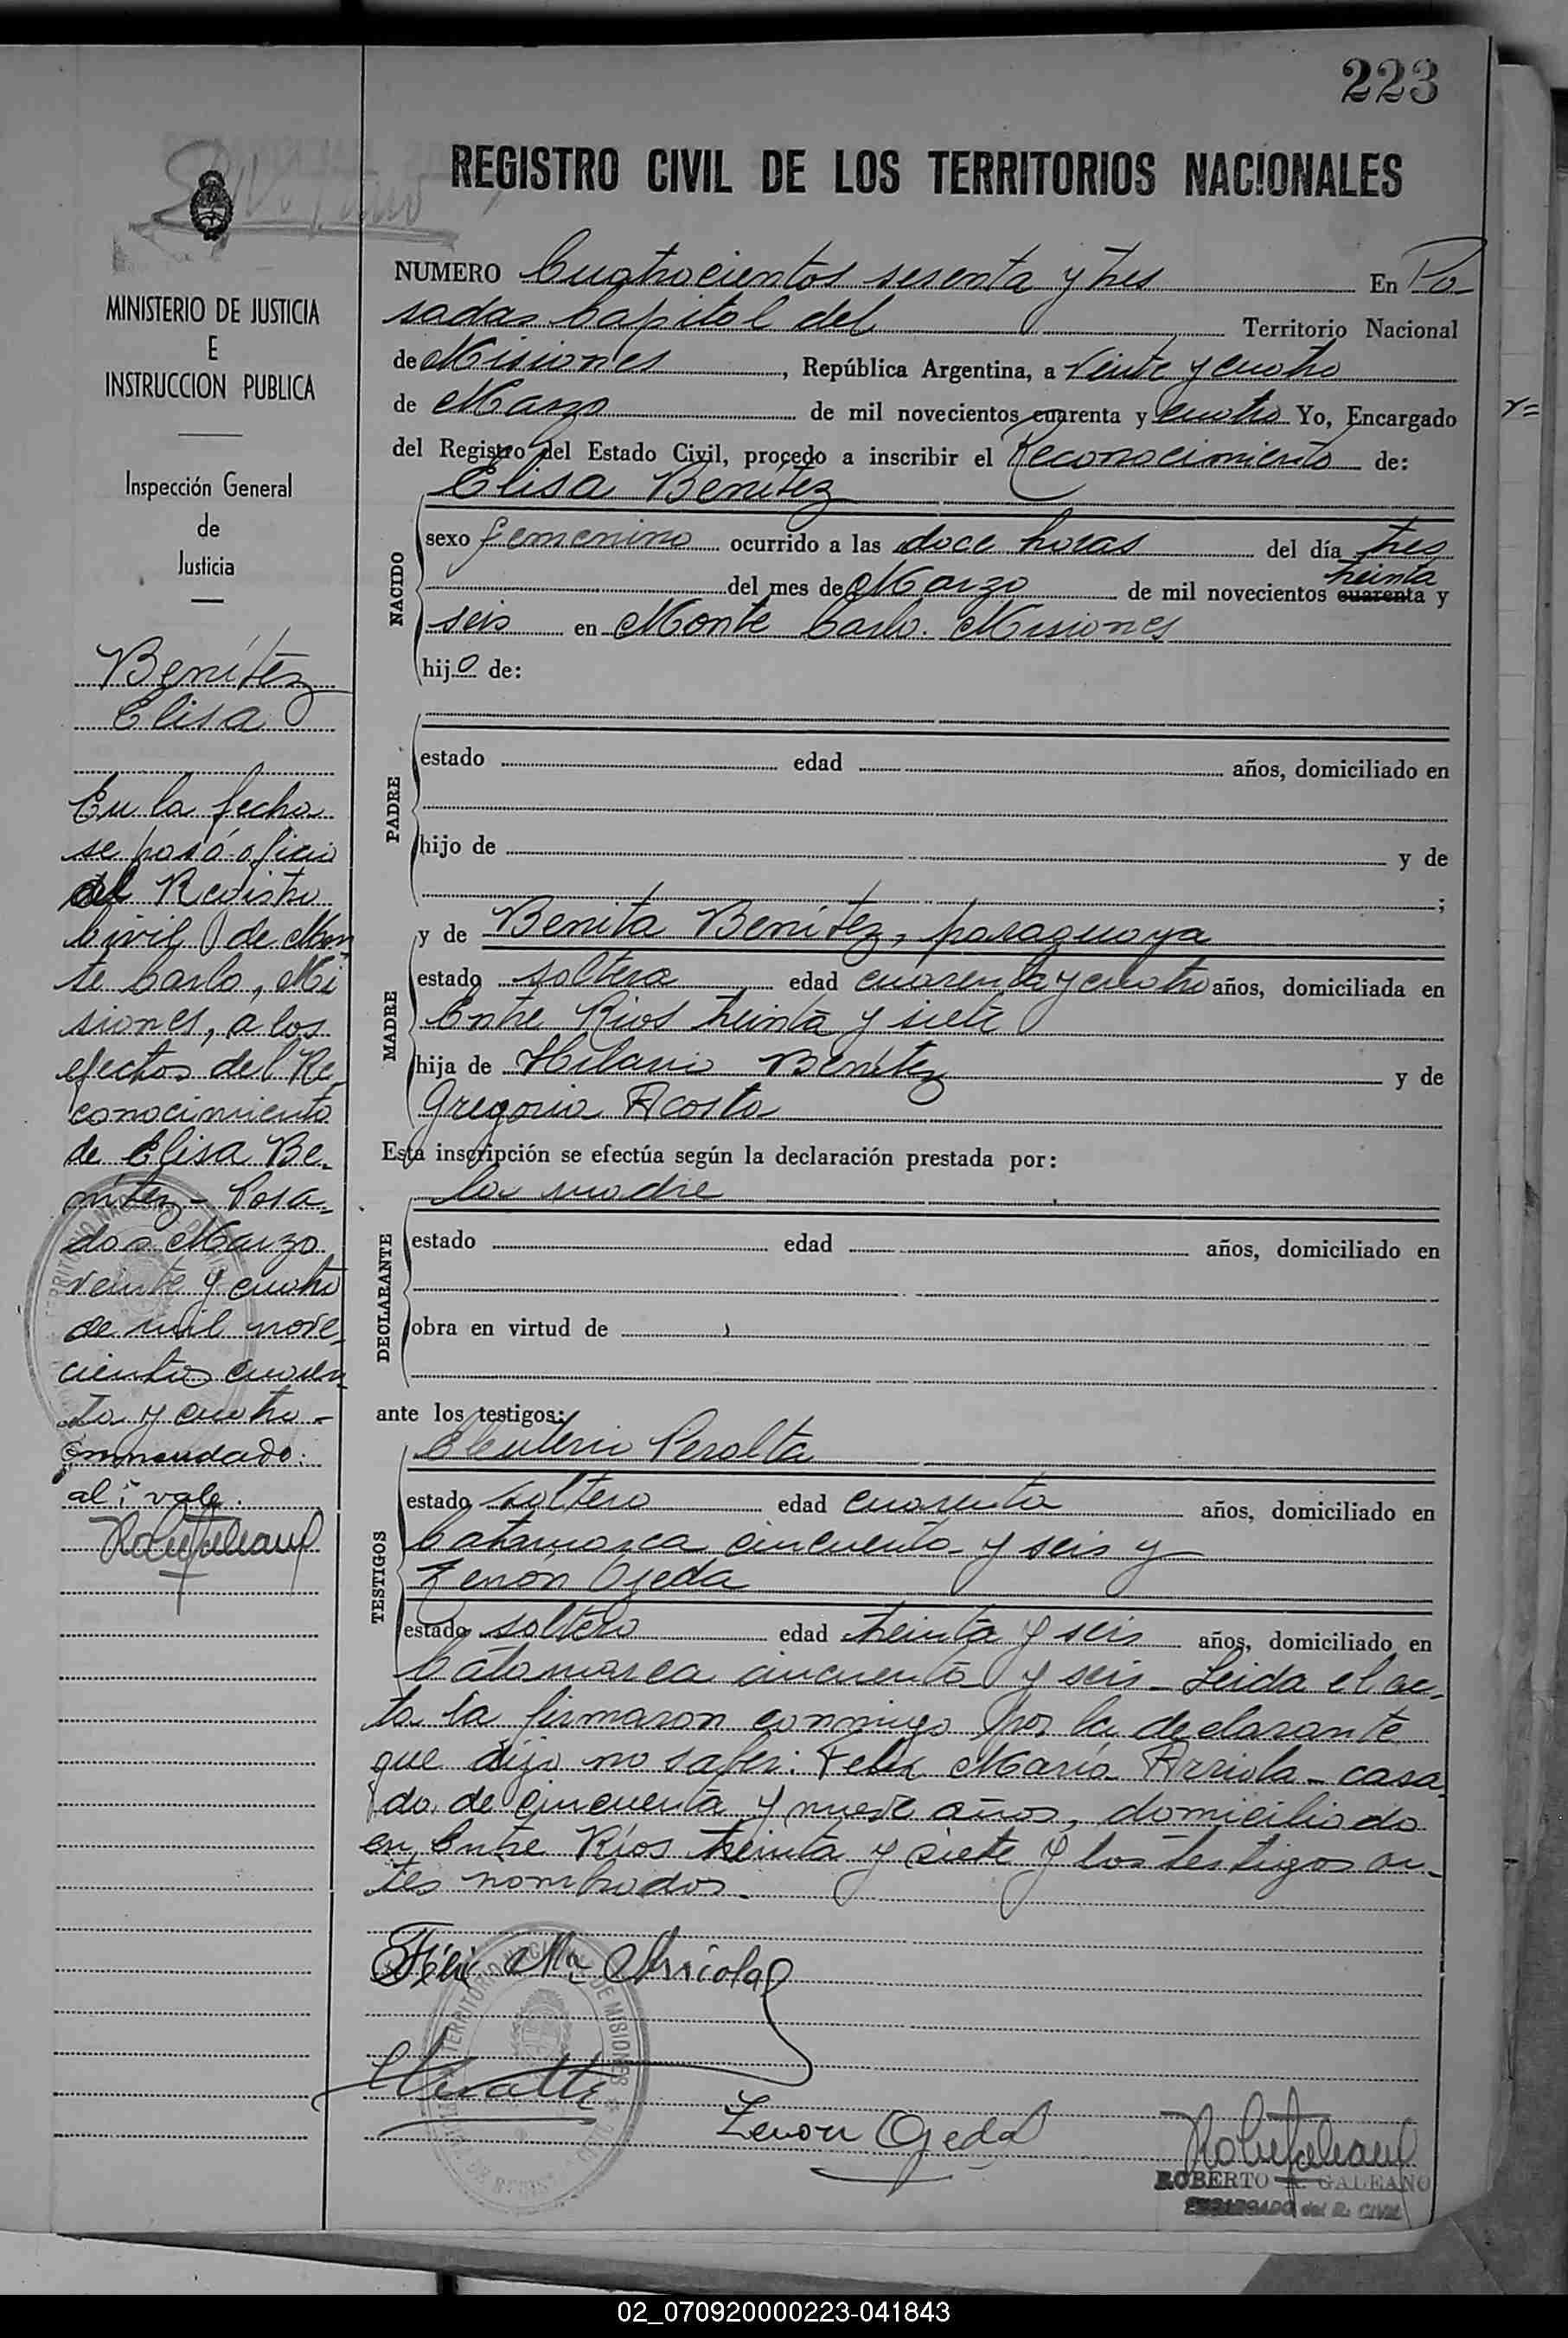 223
REGISTRO CIVIL DE LOS TERRITORIOS NACIONALES
MINISTERIO DE JUSTICIA
E
INSTRUCCION PUBLICA
Inspección General
de
Justicia
Benítez
Elisa
En la fecha
se pasó oficio
al Registro
Civil de Mon
te Carlo, Mi
siones, a los
efectos del Re
conocimiento
de Elisa Be-
nítez - Posa-
das Marzo
veinte y cuatro
de mil nove-
cientos cuaren
ta y cuatro -
Enmendado:
al: vale.
NUMERO Cuatrocientos sesenta y tres En Po-
sadas Capital del Territorio Nacional
de Misiones, República Argentina, a veinte y cuatro
de Marzo de mil novecientos cuarenta y cuatro Yo, Encargado
del Registro del Estado Civil, procedo a inscribir el Reconocimiento de:
Elisa Benítez
NACIDO
sexo femenino ocurrido a las doce horas del día tres
treinta
del mes de Marzo de mil novecientos cuarenta y
seis en Monte Carlo. Misiones
hijo de:
PADRE
estado edad años, domiciliado en
hijo de y de
;
MADRE
y de Benita Benítez, paraguaya
estado soltera edad cuarenta y cuatro años, domiciliada en
Entre Rios treinta y siete
hija de Hilario Benítez y de
Gregoria Acosta
Esta inscripción se efectúa según la declaración prestada por:
la madre
DECLARANTE
estado edad años, domiciliado en
obra en virtud de
ante los testigos:
TESTIGOS
Eleuterio Peralta
estado soltero edad cuarenta años, domiciliado en
Catamarca cincuenta y seis y
Zenón Ojeda
estado soltero edad treinta y seis años, domiciliado en
Catamarca cincuenta y seis - Leida el ac-
ta la firmaron conmigo por la declarante
que dijo no saber: Felix María Arriola - casa
do, de cincuenta y nueve años, domiciliado
en Entre Ríos treinta y siete y los testigos an-
tes nombrados.
Félix Ma Arriola
Zenon Ojeda
ROBERTO A. GALEANO
ENCARGADO del R. CIVIL
02_070920000223-041843